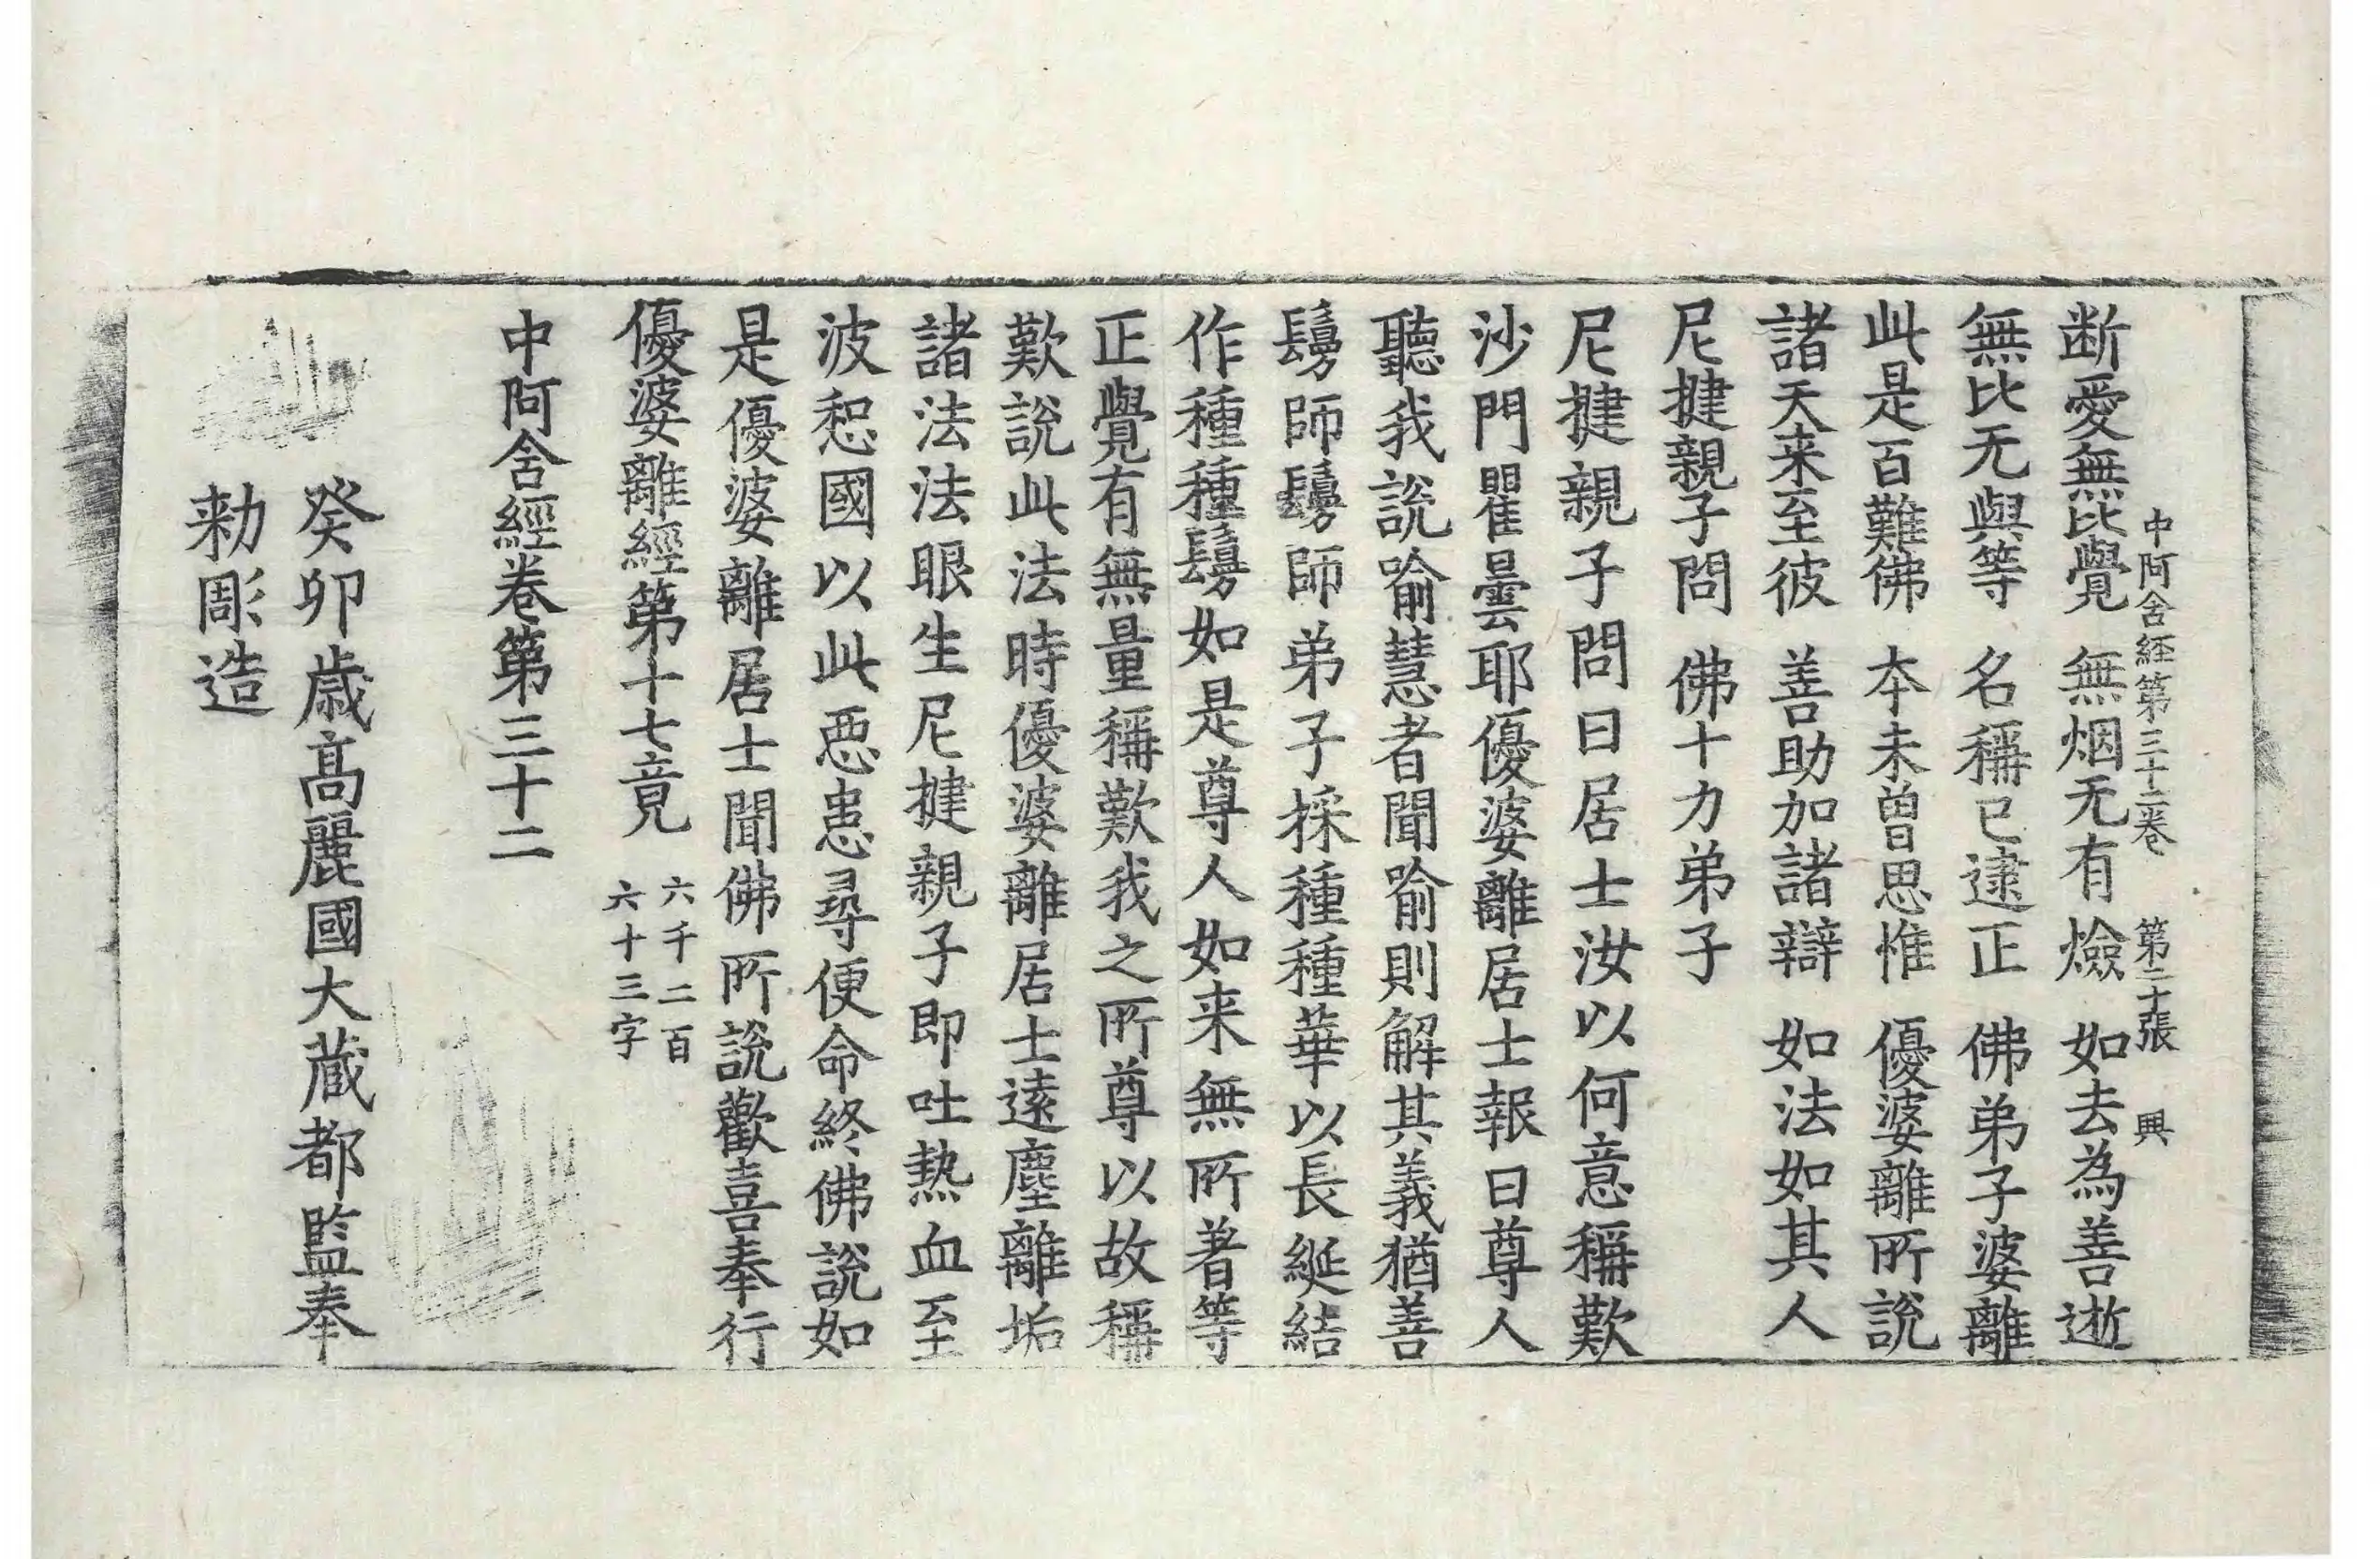 中阿含経第三十二卷　第二十張　興
断愛無比覺　無烟无有燄　如去為善逝
無比无與等　名稱已逮正　佛弟子婆離
此是百難佛　夲未曽思惟　優婆離所說
諸天来至彼　善助加諸辯　如法如其人
尼揵親子問　佛十力弟子
尼揵親子問曰居士汝以何意稱歎
沙門瞿曇耶優婆離居士報曰尊人
聽我說喻慧者聞喻則解其義猶善
鬘師鬘師弟子採種種華以長綖結
作種種鬘如是尊人如来無所著等
正覺有無量稱歎我之所尊以故稱
歎說此法時優婆離居士遠塵離垢
諸法法眼生尼揵親子即吐熱血至
波惒國以此惡患尋便命終佛說如
是優婆離居士聞佛所說歡喜奉行
優婆離經第十七竟　六千二百
六十三字
中阿含經卷第三十二
癸卯歲高麗國大藏都監奉
勑彫造